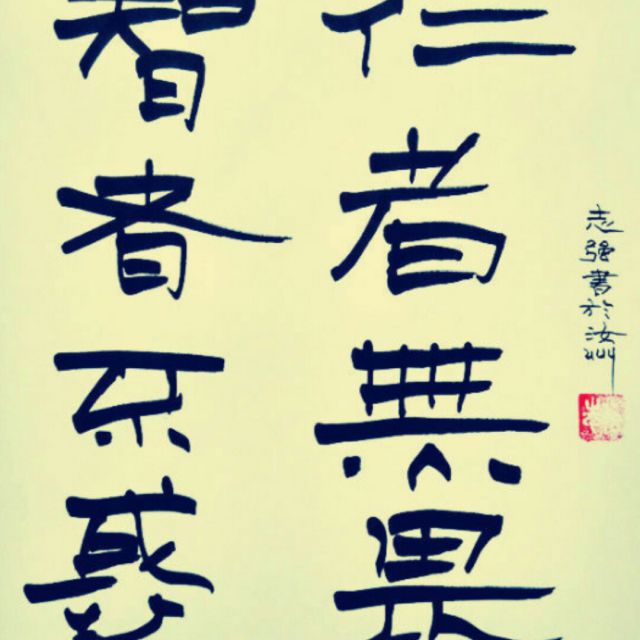 智者不惑
仁者無畏
志強書於汝州